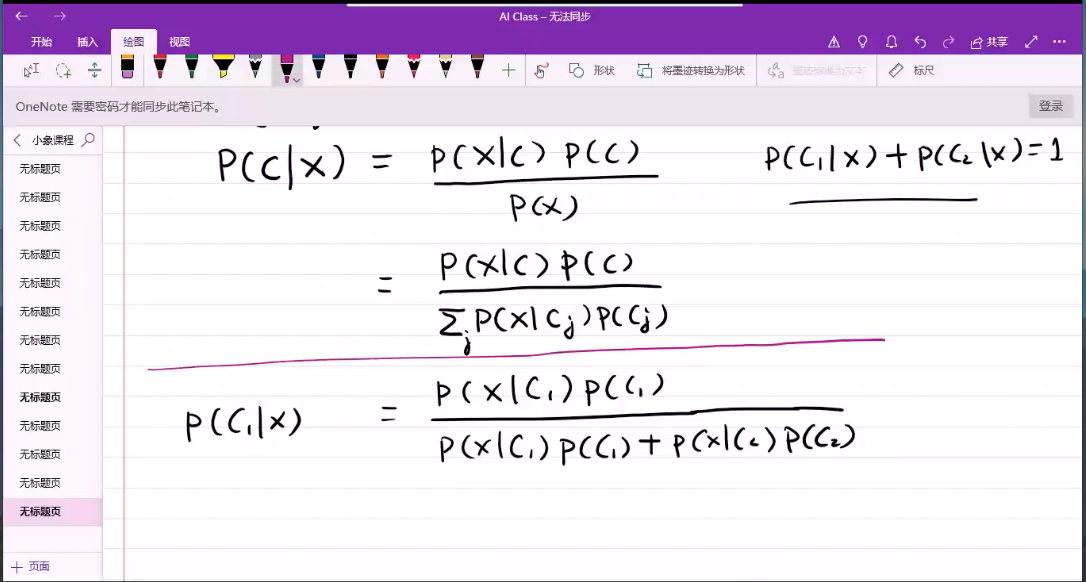 AI Class – 无法同步
开始 插入 绘图 视图
共享
形状 将墨迹转换为形状 墨迹转换为文本 标尺
OneNote 需要密码才能同步此笔记本。 登录
小象课程
无标题页
无标题页
无标题页
无标题页
无标题页
无标题页
无标题页
无标题页
无标题页
无标题页
无标题页
无标题页
无标题页
页面
P(C|X) = P(X|C) P(C)
P(X)
P(C₁|X) + P(C₂|X) = 1
= P(X|C) P(C)
∑j P(X|Cj) P(Cj)
P(C₁|X) = P(X|C₁) P(C₁)
P(X|C₁) P(C₁) + P(X|C₂) P(C₂)